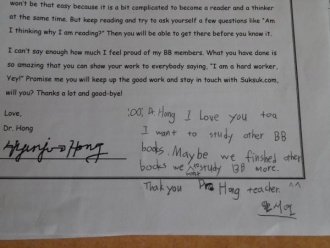 won't be that easy because it is a bit complicated to become a reader and a thinker
at the same time. But keep reading and try to ask yourself a few questions like "Am
I thinking why I am reading?" Then you will be able to get there before you know it.
I can't say enough how much I feel proud of my BB members. What you have done is
so amazing that you can show your work to everybody saying, "I am a hard worker,
Yey!" Promise me you will keep up the good work and stay in touch with Suksuk.com,
will you? Thanks a lot and good-bye!
Love,
Dr. Hong
Hong I love you too
I want to study other BB
books. Maybe we finshed other
books we study BB more.
Thank you Hong teacher. ^^